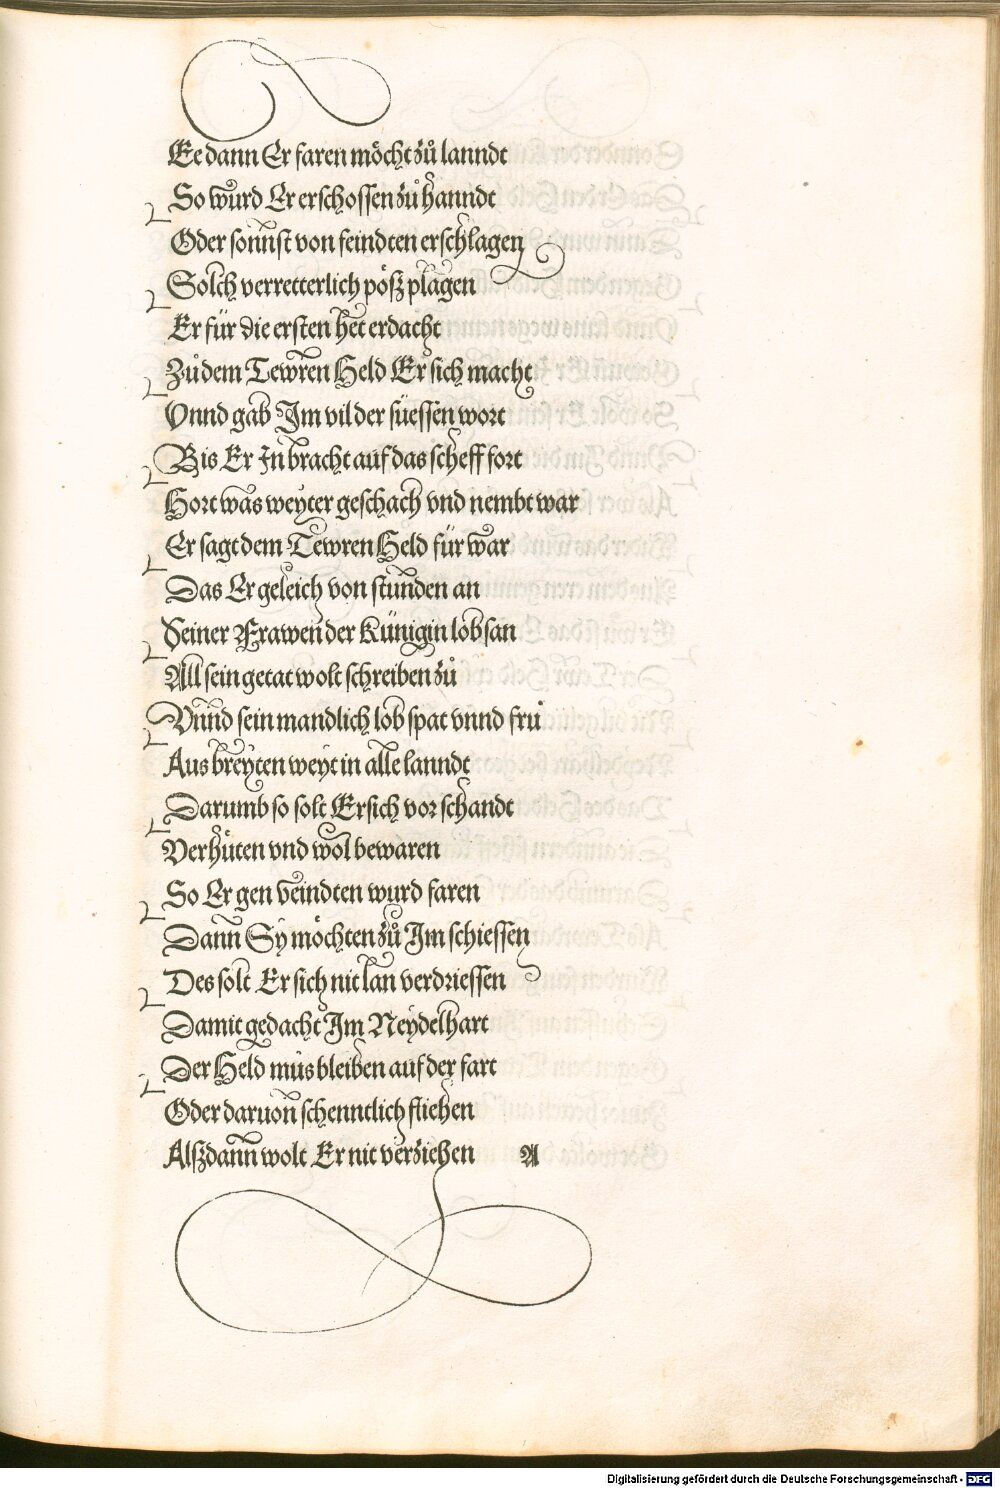 Ee dann Er faren möcht zů lanndt
So wůrd Er erschossen zů hanndt
Oder sonnst von feindten erschlagen
Solch verretterlich pöß plagen
Er für die ersten het erdacht
Zů dem Tewren Held Er sich macht
Vnnd gab Im vil der süessen wort
Bis Er In bracht auf das scheff fort
Hort was weyter geschach vnd nembt war
Er sagt dem Tewren Held für war
Das Er geleich von stunden an
Seiner Frawen der Künigin lobsan
All sein getat wolt schreiben zů
Vnnd sein mandlich lob spat vnnd frů
Aus breyten weyt in alle lanndt
Darumb so solt Er sich vor schandt
Verhüten vnd wol bewaren
So Er gen veindten wurd faren
Dann Sy möchten zů Im schiessen
Des solt Er sich nit lan verdriessen
Damit gedacht Im Neydelhart
Der Held můs bleiben auf der fart
Oder daruon schenntlich fliehen
Alßdann wolt Er nit verziehen A
Digitalisierung gefördert durch die Deutsche Forschungsgemeinschaft - DFG